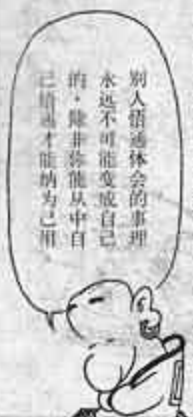 别人悟通体会的事理
永远不可能变成自己
的，除非你能从中自
己悟通才能纳为己用